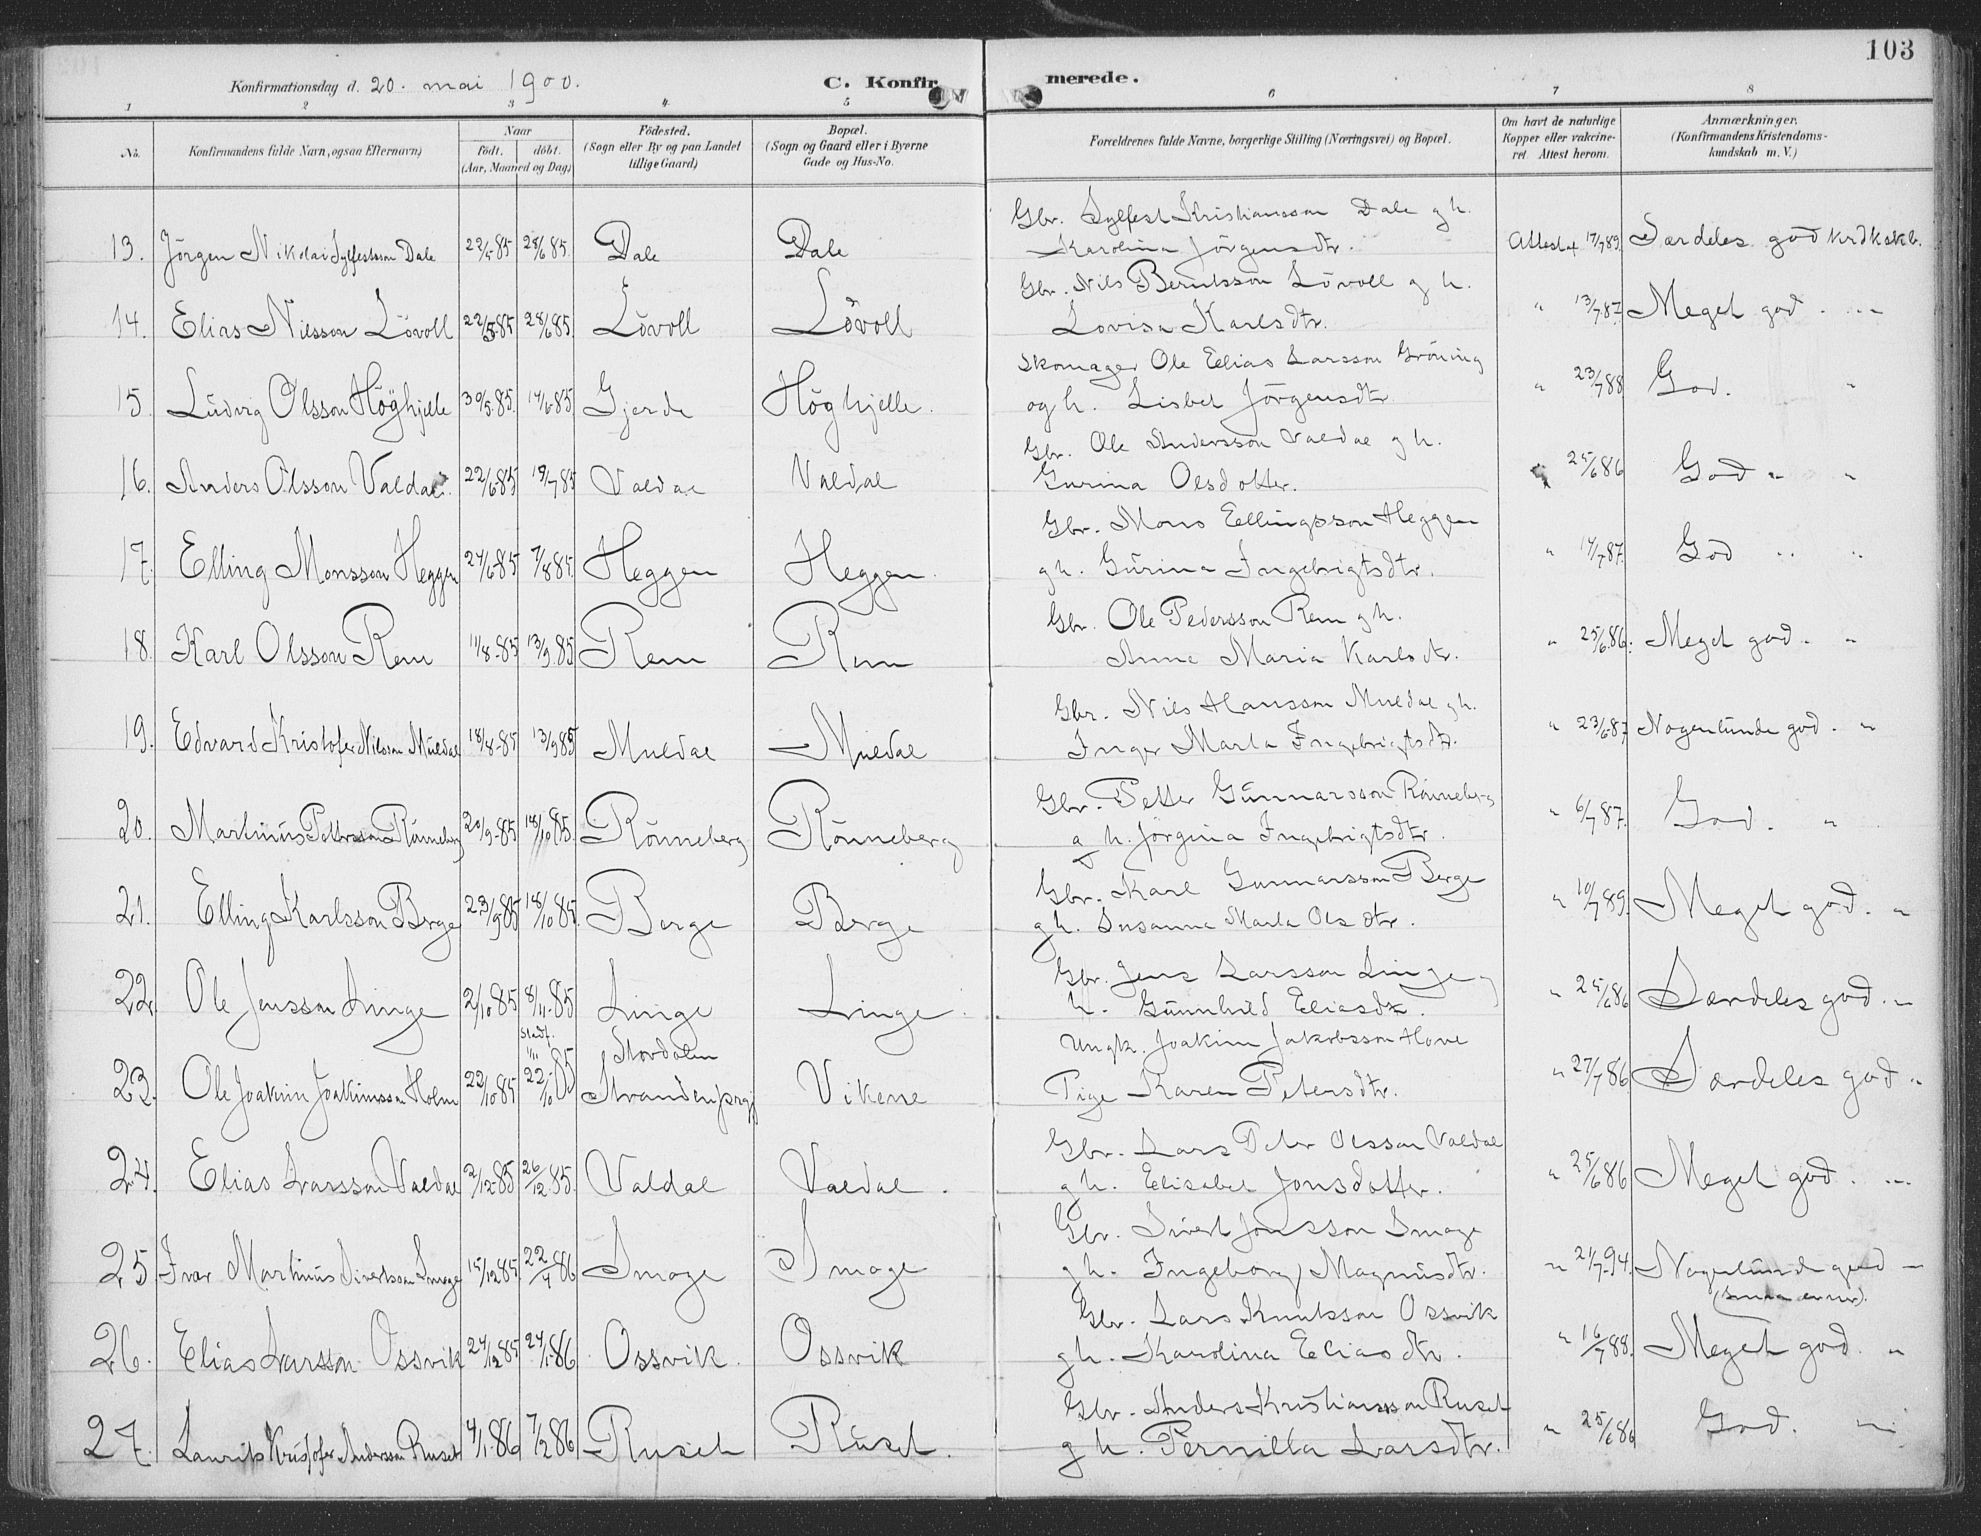 103
Konfirmationsdag d. 20. mai 1900. C. Konfirmerede.
1 2 3 4 5 6 7 8
No. Konfirmandens fulde Navn, ogsaa Efternavn) Naar født. døbt. (Aar, Maaned og Dag) Fødested. (Sogn eller By og paa Landet tillige Gaard) Bopæl. (Sogn og Gaard eller i Byerne Gade og Hus-No. Forældrenes fulde Navne, borgerlige Stilling (Næringsvei) og Bopæl. Om havt de naturlige Kopper eller vakcineret. Attest herom. Anmærkninger. (Konfirmandens Kristendomskundskab m. V.)
Gbr. Sylfest Kristiansson Dale g h.
13. Jörgen Nikolai Sylfestsson Dale 22/5 85 28/6 85. Dale Dale Karolina Jörgensdtr. Attest af 17/7 89. Særdeles god krdkskb.
Gbr. Nils Berntsson Lövoll g h.
14. Elias Nilsson Lövoll 22/5 85 28/6 85. Lövoll Lövoll Lovisa Karlsdtr. " 13/7 87. Meget god. "
Skomager Ole Elias Larsson Gröning
15. Ludvig Olsson Höghjelle 30/5 85. 14/6 85 Gjerde Höghjelle. og h. Lisbet Jörgensdtr " 23/7 88 God. "
Gbr. Ole Andersson Valdal g h.
16. Anders Olsson Valdal. 22/6 85 19/7 85 Valdal Valdal Gurina Olsdotter. " 25/6 86 God " "
Gbr. Mons Ellingsson Heggen
17. Elling Monsson Heggen 24/6 85 7/8 85. Heggen Heggen. g h. Gurina Ingebrigtsdtr. " 14/7 87. God " "
Gbr. Ole Pedersson Rem g h.
18. Karl Olsson Rem 11/8 85 13/9 85 Rem Rem Anne Maria Karlsdtr. " 25/6 86. Meget god. "
Gbr. Nils Hansson Muldal g h.
19. Edvard Kristofer Nilsson Muldal 18/8 85 13/9 85 Muldal Muldal Inger Marta Ingebrigtsdtr. " 23/6 87 Nogenlunde god. "
Gbr. Petter Gunnarsson Rönneberg
20. Martinus Pettersson Rönneberg 20/9 85 18/10 85. Rönneberg Rönneberg g h. Jörgina Ingebrigtsdtr. " 6/7 87. God. "
Gbr. Karl Gunnarsson Berge
21. Elling Karlsson Berge 23/9 85 18/10 85. Berge Berge g h. Susanna Marta Olsdtr. " 10/7 89. Meget god. "
Gbr. Jens Larsson Linge g
22. Ole Jensson Linge 2/10 85 8/11 85 Linge Linge. h. Gunnhild Eliasdtr. " 25/6 86 Særdeles god. "
Stadf. 1/11 Stordalen Ungk. Joakim Jakobsson Hove
23. Ole Joakim Joakimsson Holm 22/10 85 22/10 85 Strandenprgj Vikene Pige Karen Petersdtr. " 27/7 86 Særdeles god "
Gbr. Lars Peter Olsson Valdal
24. Elias Larsson Valdal 2/12 85 26/12 85. Valdal Valdal. g h. Elisabet Jonsdotter. " 25/6 86 Meget god. "
Gbr. Sivert Jonsson Smoge
25 Ivar Martinus Sivertsson Smoge 15/12 85 22/4 86 Smoge Smoge g h. Ingeborg Magnusdtr. " 21/7 94. Nogenlunde god "
(smaa evner)
Gbr. Lars Knutsson Ossvik
26. Elias Larsson Ossvik 24/12 85 24/1 86 Ossvik. Ossvik g h. Karolina Eliasdtr. " 16/7 88. Meget god. "
Gbr. Anders Kristiansson Ruset
27. Laurits Kristofer Andersson Ruset 4/1 86 7/2 86 Ruset Ruset. g h. Pernilla Larsdtr. " 25/6 86 God. "